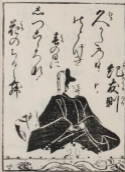 紀友則
久かたのひかり
のとけき
春の日に
しつこゝろなく
花のちるらむ